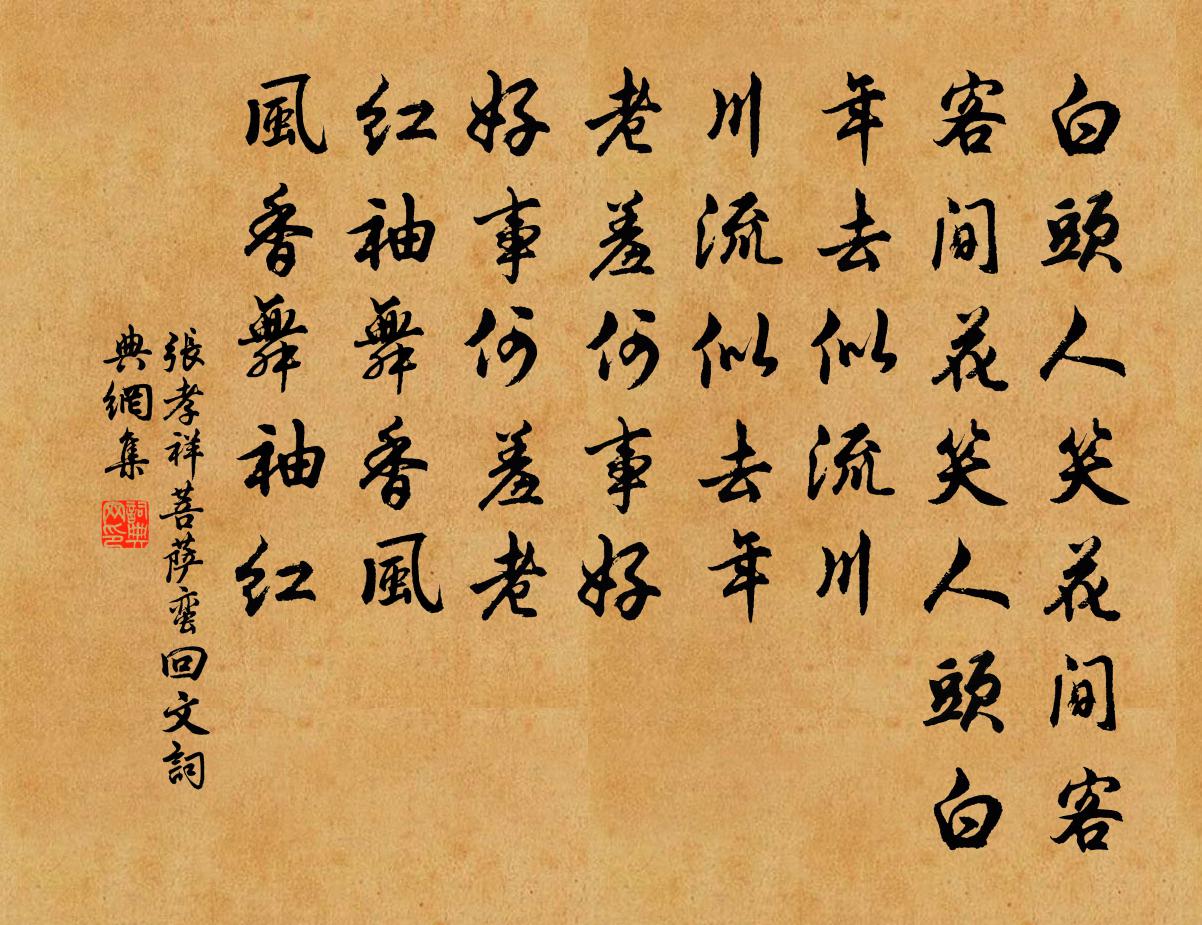 白頭人笑花間客
客間花笑人頭白
年去似流川
川流似去年
老羞何事好
好事何羞老
紅袖舞香風
風香舞袖紅
張孝祥菩薩蠻回文詞
典網集
詞典网印